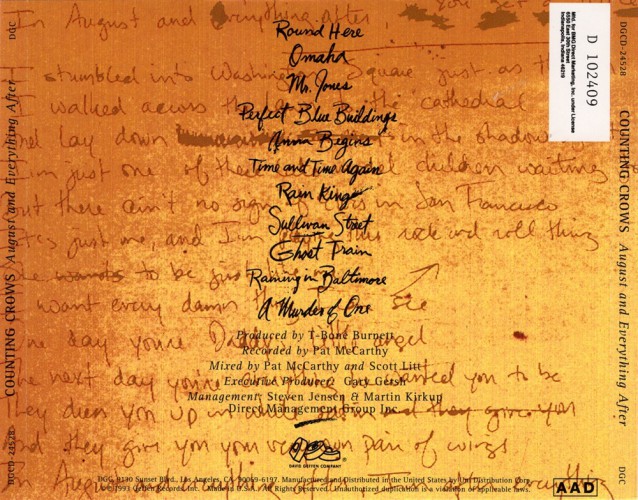 In August and everything after
You get
Round Here
Omaha
I stumbled into Washing Square just as th
Mr. Jones
I walked across th the cathedral
Perfect Blue Buildings
and lay down in the shadow
Anna Begins
I'm just one of the children waiting
Time and Time Again
but there ain't no sign is in San Francisco
Rain King
just me, and I'm this rock and roll thing
Sullivan Street
Ghost Train
wants to be just
Raining in Baltimore
want every damn see
A Murder of One
one day you're Daddy's angel
Produced by T-Bone Burnett
Recorded by Pat McCarthy
Mixed by Pat McCarthy and Scott Litt
The next day you're wanted you to be
Executive Producer: Gary Gersh
Management: Steven Jensen & Martin Kirkup
They dress you up in and they give you
Direct Management Group Inc.
and they give you your own pair of wings
DAVID GEFFEN COMPANY
DGC, 9130 Sunset Blvd., Los Angeles, CA 90069-6197. Manufactured and Distributed in the United States by Uni Distribution Corp.
1993 Geffen Records, Inc. Made in U.S.A. All Rights Reserved. Unauthorized duplication is a violation of applicable laws.
In August
AAD
D 102409
Mfd. for BMG Direct Marketing, Inc. under License
6550 East 30th Street
Indianapolis, Indiana 46219
DGCD-24528 COUNTING CROWS August and Everything After DGC
DGCD-24528 COUNTING CROWS August and Everything After DGC